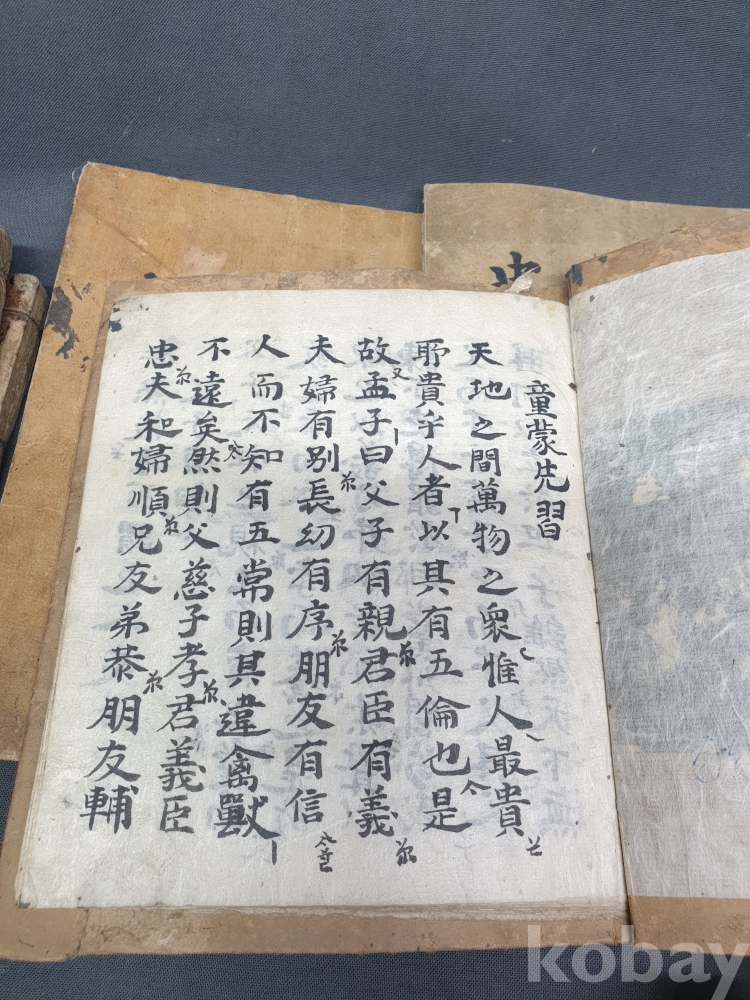 童蒙先習
天地之間萬物之衆惟人最貴
所貴乎人者以其有五倫也是
故孟子曰父子有親君臣有義
夫婦有别長幼有序朋友有信
人而不知有五常則其違禽獸
不遠矣然則父慈子孝君義臣
忠夫和婦順兄友弟恭朋友輔
kobay